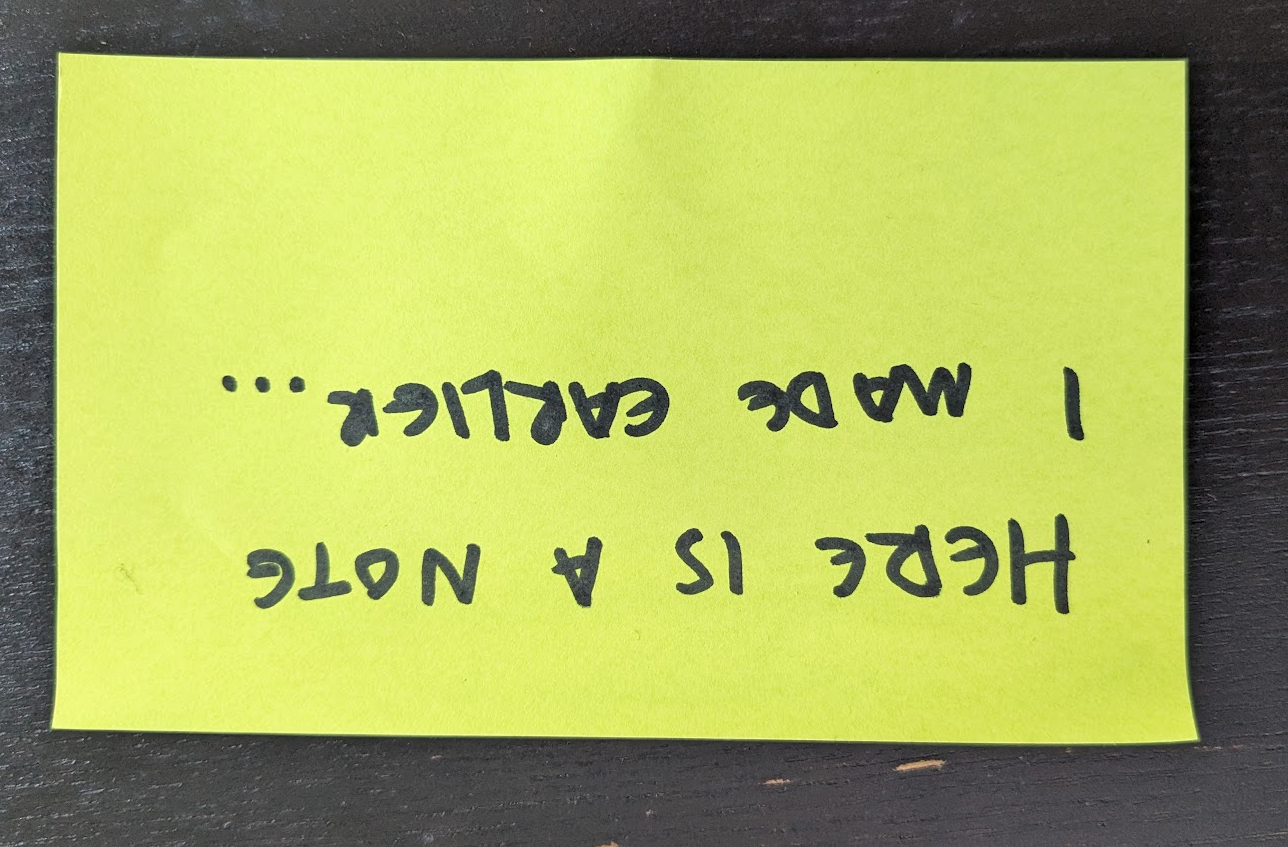 HERE IS A NOTE
I MADE EARLIER...